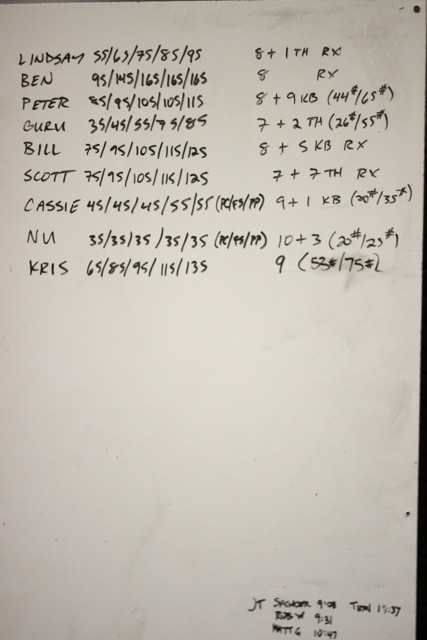 LINDSAY 55/65/75/85/95 8 + 1 TH RX
BEN 95/145/165/165/165 8 RX
PETER 85/95/105/105/115 8 + 9 KB (44#/65#)
GURU 35/45/55/75/85 7 + 2 TH (26#/55#)
BILL 75/95/105/115/125 8 + 5 KB RX
SCOTT 75/95/105/115/125 7 + 7 TH RX
CASSIE 45/45/45/55/55 (PC/FS/PP) 9 + 1 KB (20#/35#)
NU 35/35/35/35/35 (PC/FS/PP) 10 + 3 (20#/23#)
KRIS 65/85/95/115/135 9 (53#/75#)
JT 9:03 19:37
ROB W 9:31
MATT G 10:47